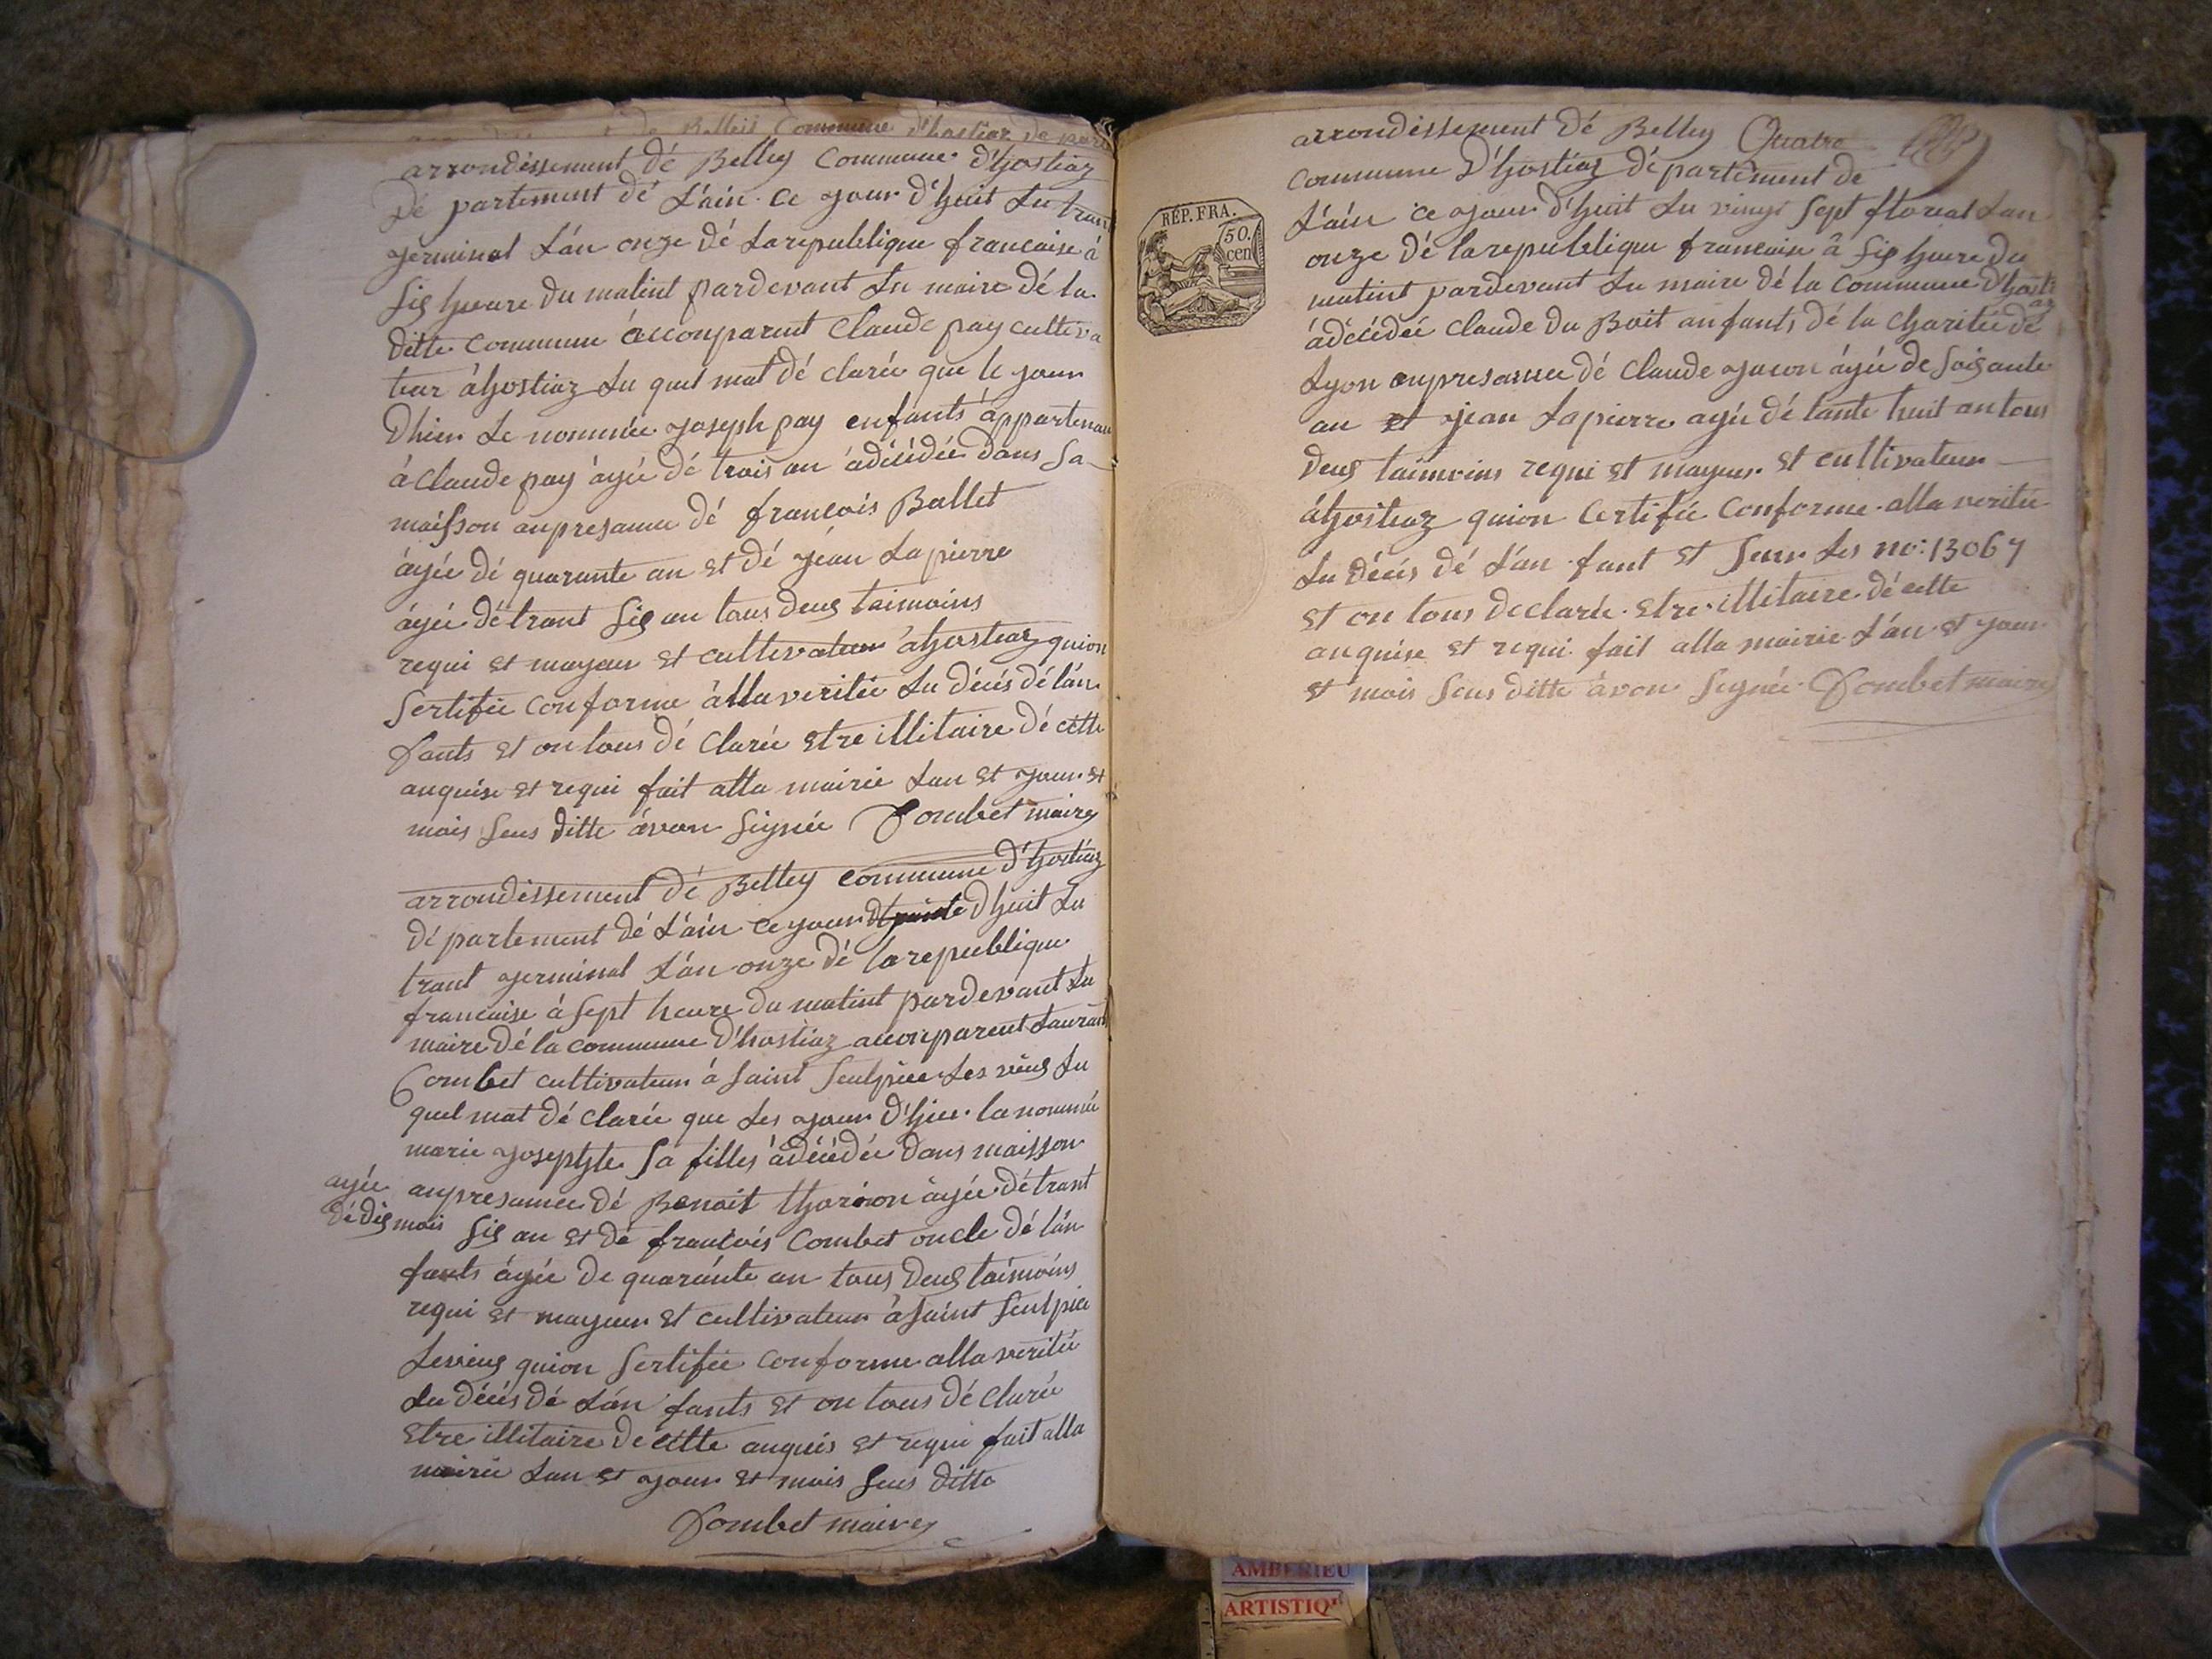 de Belleis Commune d'hostiaz de par
arrondissement dé Belley Commune d'hostiaz
Dé partement dé L'ain ce jour d'huit Lu trant
germinal L'an onze dé Larepublique francaise à
sis heure du matint pardevant Lu maire dé la
ditte Commune àcconparent Claude pay cultiva
teur àhostiaz Lu quel mat dé clarée que le jour
Dhier Le nommée joseph pay enfants àppartenan
à Claude pay àgée dé trois an àdécédée dans sa
maisson anpresance dé francois Ballet
àgée dé quarante an et dé jéan Lapierre
àgée détrant sis an tous deus taimoins
requi et mayeur et cultivateur àhostiaz quion
sertifée conforme àlla veritée Lu décés dé l'an
fants et on tous dé clarée etre illitaire dé cette
anquise et requi fait alla mairie Lan et jour et
mois seus ditte àvon signée Combet maire
arrondissement dé Belley commune d'hostiaz
Dé partement dé L'ain ce jour dhuit Lu
trant germinal L'an onze dé la republique
francaise à sept heure du matint pardevant Lu
maire dé la commune D'hostiaz aconparent Laurant
Combet cultivateur à saint Seulpice Les vieus Lu
quel mat dé clarée que Les jour D'hier la nommée
marie josephte sa filles àdécédée dans maisson
agée anpresance dé Benoit thorion àgée détrant
dé dis mois sis an et dé francois Combet oncle dé l'an
fants àgée de quarante an tous deus taimoins
requi et mayeur et cultivateur àsaint Seulpice
Lesvieus quion sertifée conforme alla veritée
Lu décés dé L'an fants et on tous dé clarée
etre illitaire de cette anquis et requi fait alla
mairie Lan et jour et mois seus ditte
Combet maire
arrondissement dé Belley Quatre
Commune D'hostiaz département de
L'ain ce jour d'huit Lu vingt sept floreal Lan
onze dé larepublique francaise à sis heure du
matint pardevant Lu maire dé la Commune D'hosti
az
àdécédée claude du Boit anfants dé la charitée de
Lyon anpresance dé Claude jacon àgée de soisante
an et jean Lapierre agée dé tante huit an tous
deus taimoins requi et mayeur et cultivateur
àhostiaz quion Certifée Conforme alla veritée
Lu décés dé L'an fant et seur Les no: 13067
et on tous declarée etre illitaire dé cette
anquise et requi fait alla mairie L'an et jour
et mois seus ditte àvon signée Combet maire
RÉP. FRA.
50.
cen
AMBERIEU
ARTISTIQ